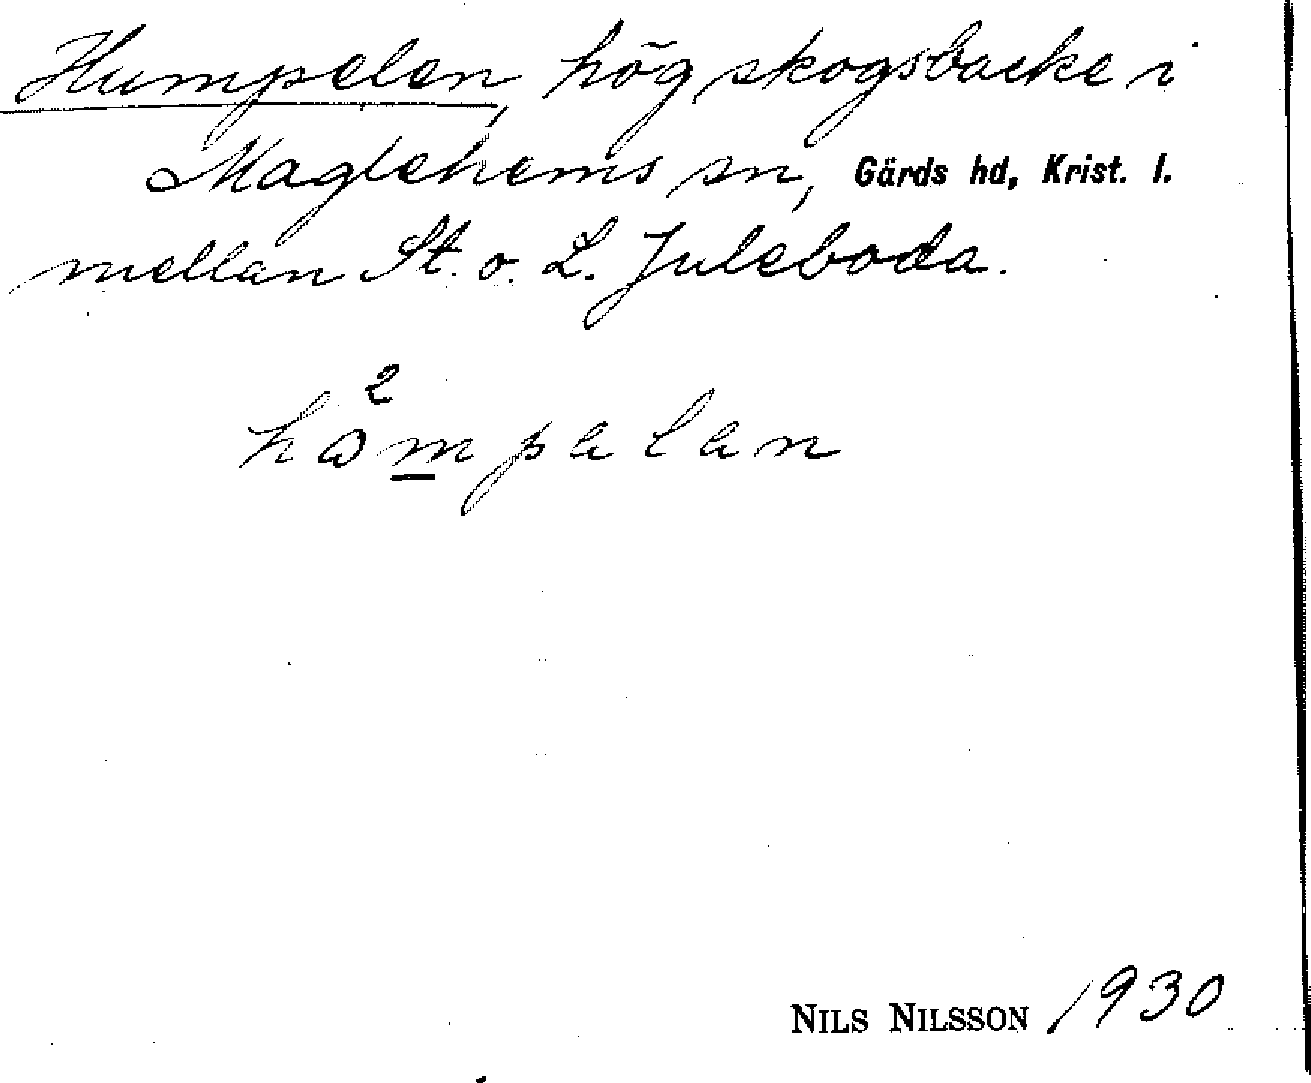 Humpelen, hög skogsbacke i
Maglehems sn, Gärds hd, Krist. l.
mellan St. o. L. Juleboda.
2
håmpalan
NILS NILSSON 1930